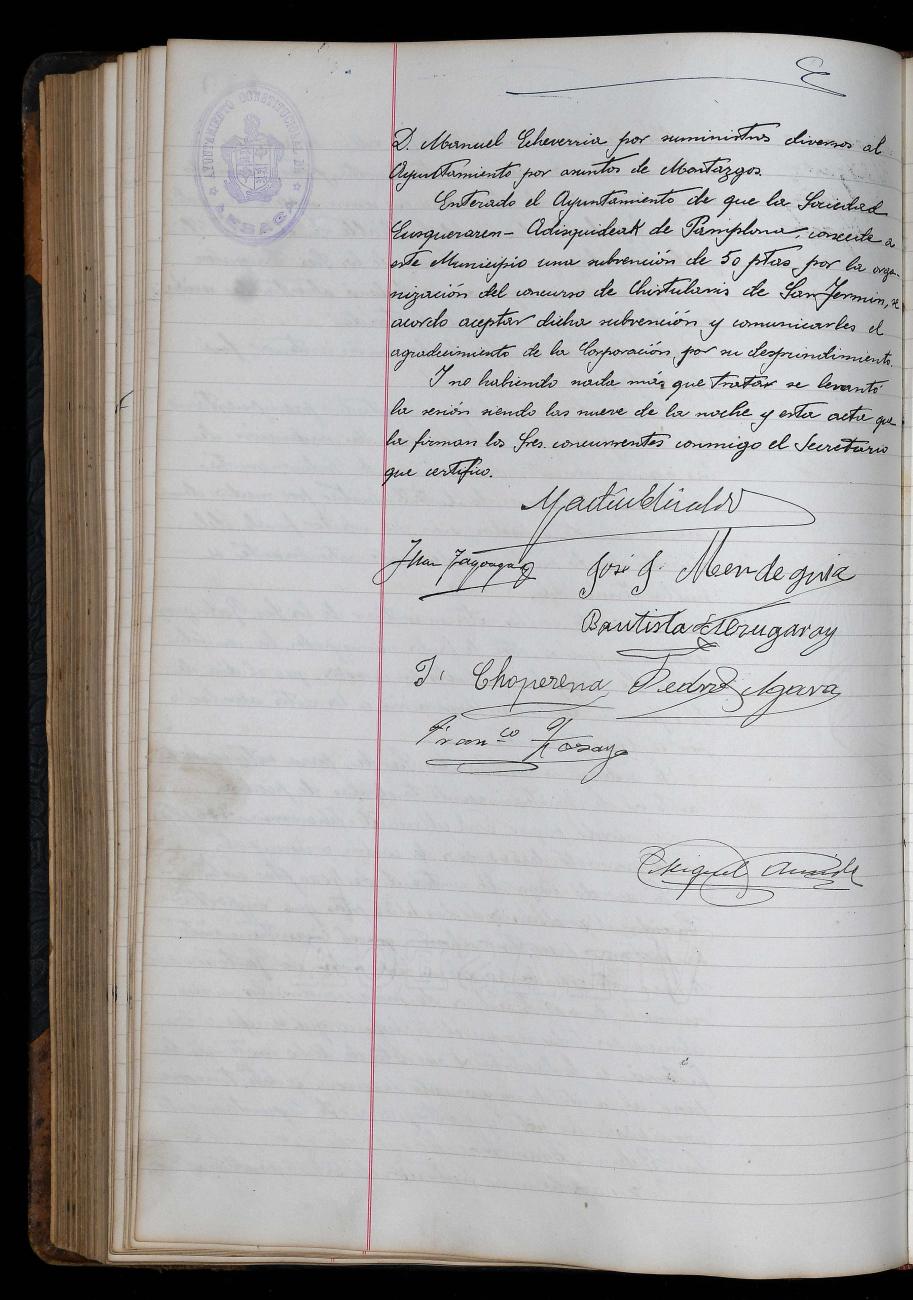 AYUNTAMIENTO CONSTITUCIONAL DE
LESACA
D. Manuel Echeverria por suministros diversos al
Ayuntamiento por asuntos de Mostazgos.
Enterado el Ayuntamiento de que la Sociedad
Eusqueraren-Adisquideak de Pamplona, concede a
este Municipio una subvención de 50 ptas, por la orga-
nización del concurso de Chistularis de San Fermin, se
acordo aceptar dicha subvención y comunicarles el
agradecimiento de la Corporación, por su desprindimiento.
Y no habiendo nada más que tratar se levantó
la sesión siendo las nueve de la noche y esta acta que
la firman los Sres. concurrentes conmigo el Secretario
que certifico.
Juan
José J. Mendeguia
Bautista Telerugaray
J. Choperena
Pedro Igara
Franco
Miguel